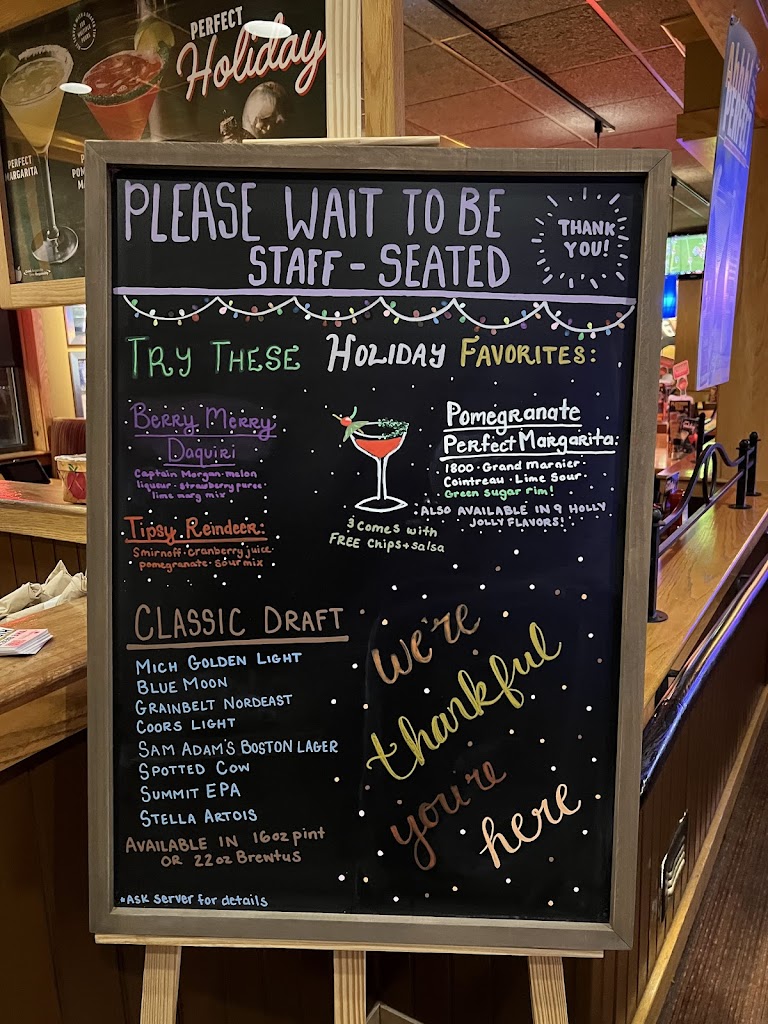 PERFECT
Holiday
PERFECT
MARGARITA
PLEASE WAIT TO BE
STAFF-SEATED
THANK
YOU!
TRY THESE HOLIDAY FAVORITES:
Berry Merry
Daquiri
Captain Morgan·melon
liqueur·strawberry puree·
lime marg mix
Tipsy Reindeer:
Smirnoff·cranberry juice
pomegranate·sour mix
Pomegranate
Perfect Margarita:
1800·Grand Marnier
Cointreau·Lime Sour
Green sugar rim!
·ALSO AVAILABLE IN 9 HOLLY
JOLLY FLAVORS!
3 comes with
FREE Chips+salsa
CLASSIC DRAFT
MICH GOLDEN LIGHT
BLUE MOON
GRAINBELT NORDEAST
COORS LIGHT
SAM ADAM'S BOSTON LAGER
SPOTTED COW
SUMMIT EPA
STELLA ARTOIS
AVAILABLE IN 16oz pint
OR 22oz Brewtus
*ASK server for details
we're
thankful
you're
here